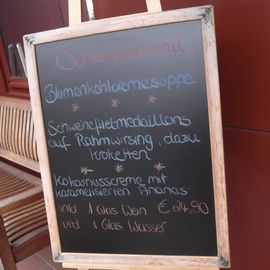 Blumenkohlcremesuppe
* * *
Schweinefiletmedaillons
auf Rahmwirsing, dazu
Kroketten
* * *
Kokosnusscreme mit
karamelisierten Ananas
inkl 1 Glas Wein € 24,90
und 1 Glas Wasser